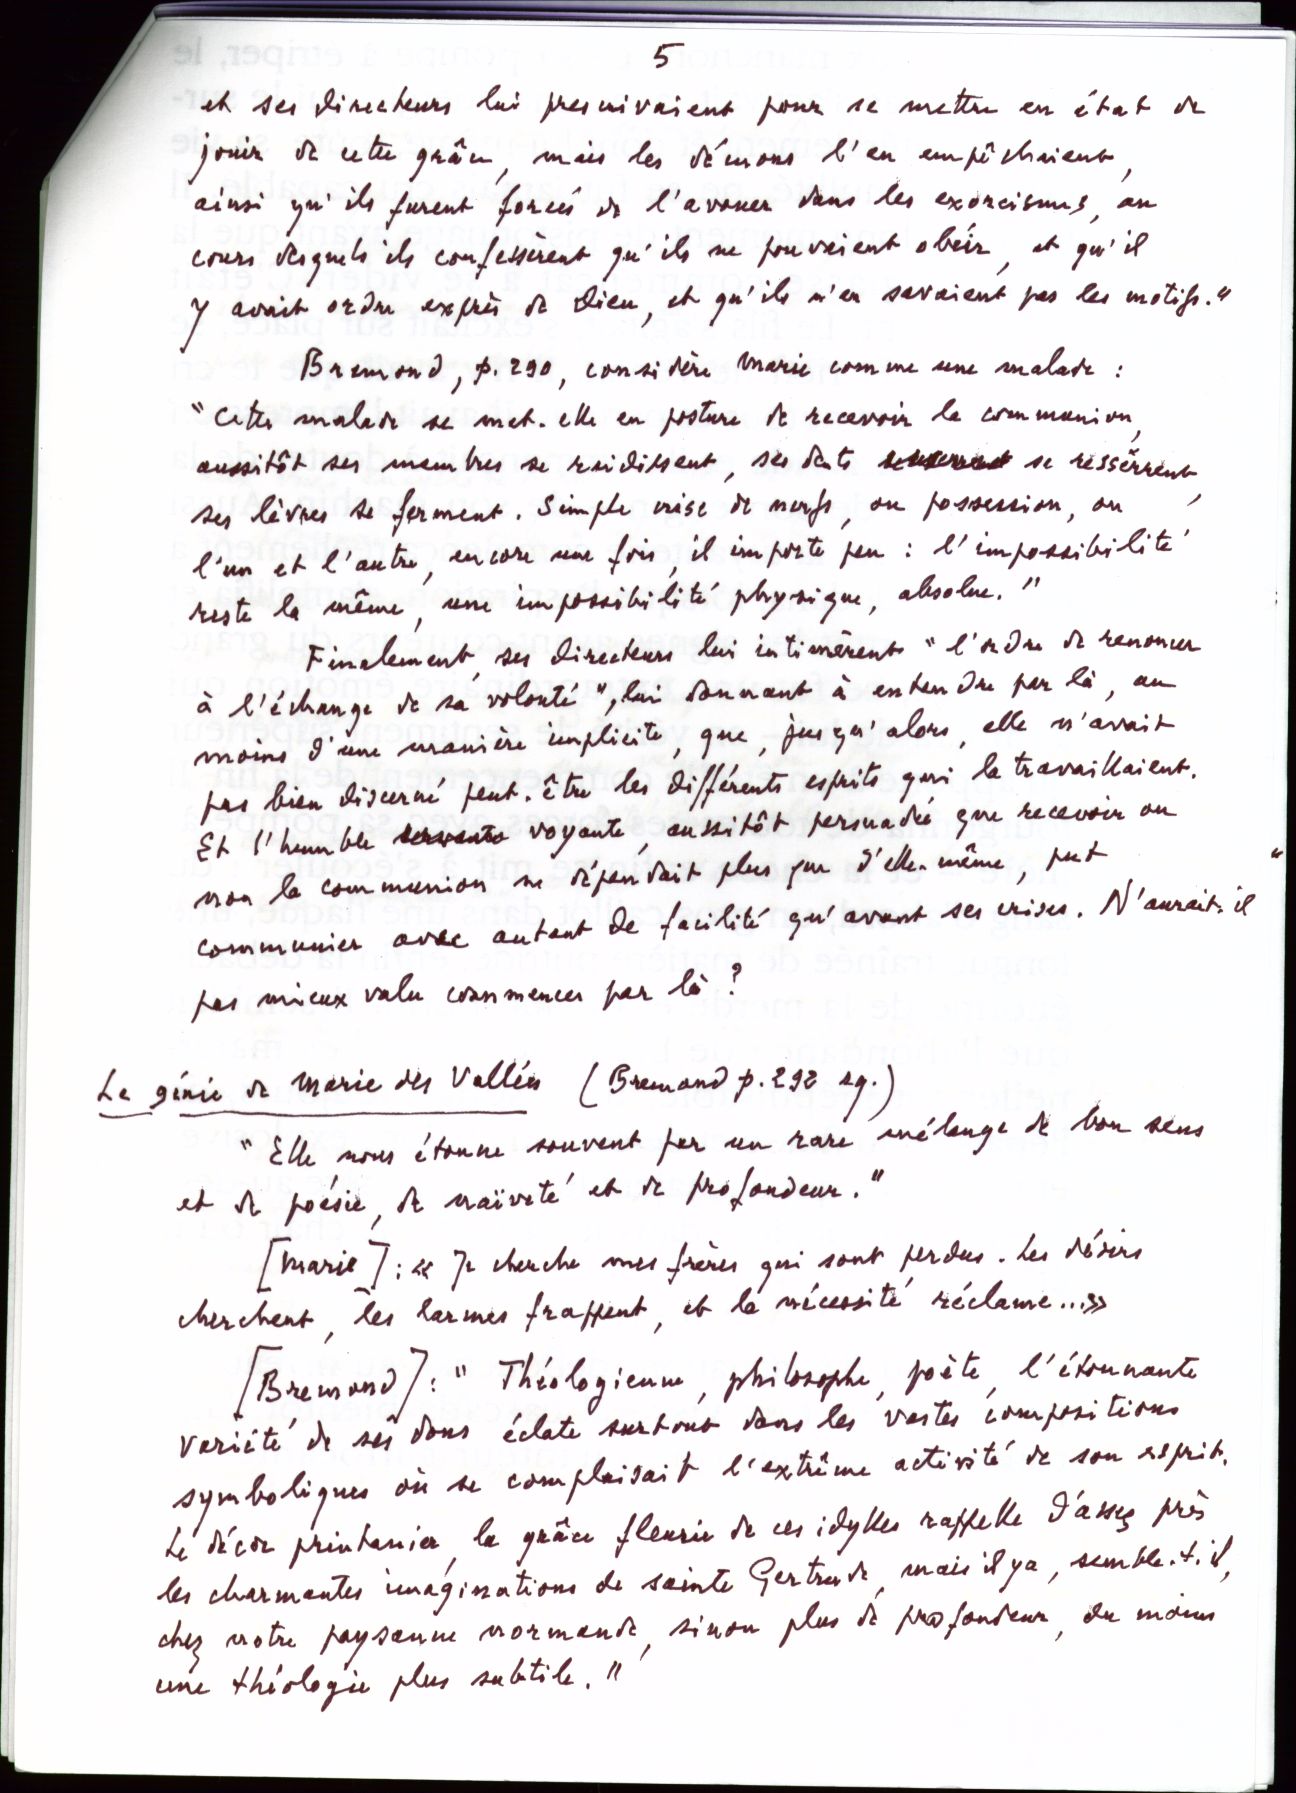 5
et ses directeurs lui prescrivaient pour se mettre en état de
jouir de cette grâce, mais les démons l'en empêchaient,
ainsi qu'ils furent forcés de l'avouer dans les exorcismes, au
cours desquels ils confessèrent qu'ils ne pouvaient obéir, et qu'il
y avait ordre exprès de Dieu, et qu'ils n'en savaient pas les motifs."
Bremond, p. 290, considère Marie comme une malade :
"Cette malade se met-elle en posture de recevoir la communion,
aussitôt ses membres se raidissent, ses dents se ressèrrent,
ses lèvres se ferment. Simple crise de nerfs, ou possession, ou
l'un et l'autre, encore une fois, il importe peu : l'impossibilité
reste la même, une impossibilité physique, absolue."
Finalement, ses directeurs lui intimèrent "l'ordre de renoncer
à l'échange de sa volonté", lui donnant à entendre par là, au
moins d'une manière implicite, que, jusqu'alors, elle n'avait
pas bien discerné peut-être les différents esprits qui la travaillaient.
Et l'humble servante voyante, aussitôt persuadée que recevoir ou
non la communion ne dépendait plus que d'elle-même, put
communier avec autant de facilité qu'avant ses crises. N'aurait-il"
pas mieux valu commencer par là ?
Le génie de Marie des Vallées (Bremond p. 292 sq.)
"Elle nous étonne souvent par un rare mélange de bon sens
et de poésie, de naïveté et de profondeur."
[Marie] : « Je cherche mes frères qui sont perdus. Les désirs
cherchent, les larmes frappent, et la nécessité réclame...»
[Bremond] : " Théologienne, philosophe, poète, l'étonnante
variété de ses dons éclate surtout dans les vastes compositions
symboliques où se complaisait l'extrême activité de son esprit.
Le décor printanier, la grâce fleurie de ces idylles rappelle d'assez près
les charmantes imaginations de sainte Gertrude, mais il y a, semble-t-il,
chez notre paysanne normande, sinon plus de profondeur, du moins
une théologie plus subtile."